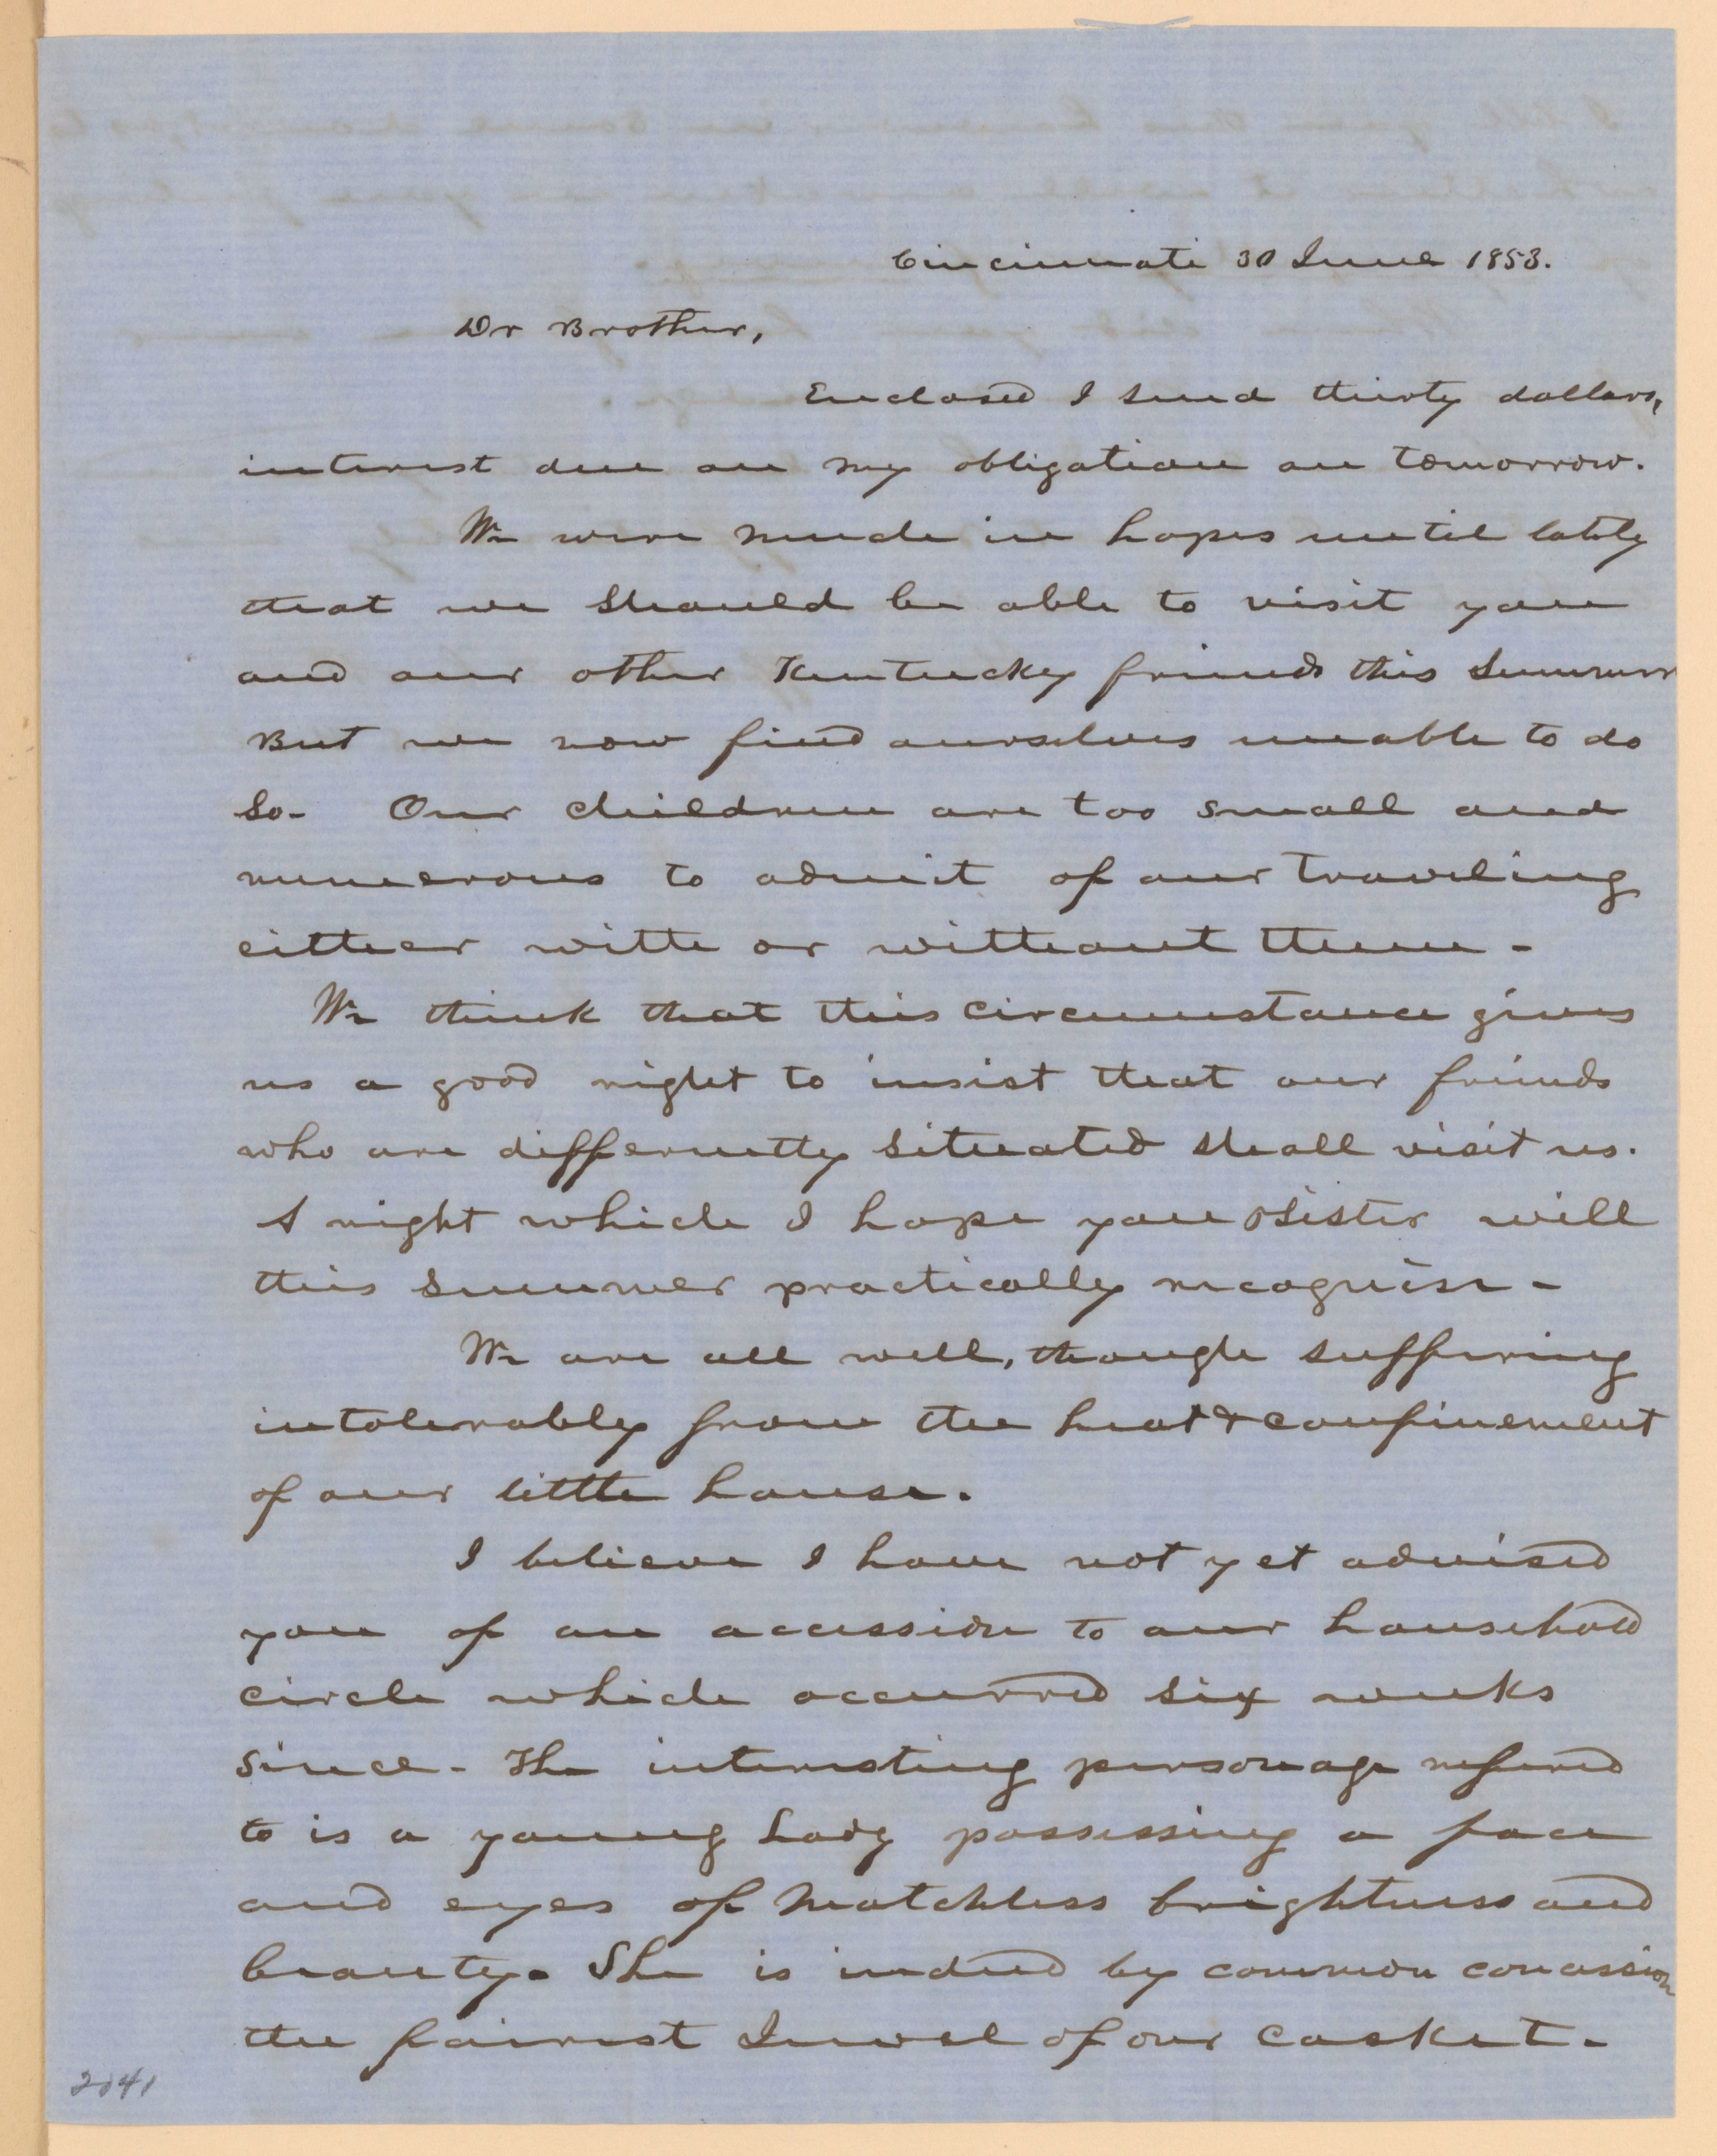 Cincinnati 30 June 1853.
Dr Brother,
Enclosed I send thirty dollars,
interest due on my obligation on tomorrow.
We were much in hopes until lately
that we should be able to visit you
and our other Kentucky friends this Summer
But we now find ourselves unable to do
so - Our children are too small and
numerous to admit of our traveling
either with or without them -
We think that this circumstance gives
us a good right to insist that our friends
who are differently situated shall visit us.
A right which I hope you & Sister will
this summer practically recognise -
We are all well, though suffering
intolerably from the heat & confinement
of our little house.
I believe I have not yet advised
you of an accession to our household
circle which occurred six weeks
since - The interesting personage refered
to is a young Lady possessing a face
and eyes of matchless brightness and
beauty. She is indeed by common concession
the fairest Jewel of our casket -
2041